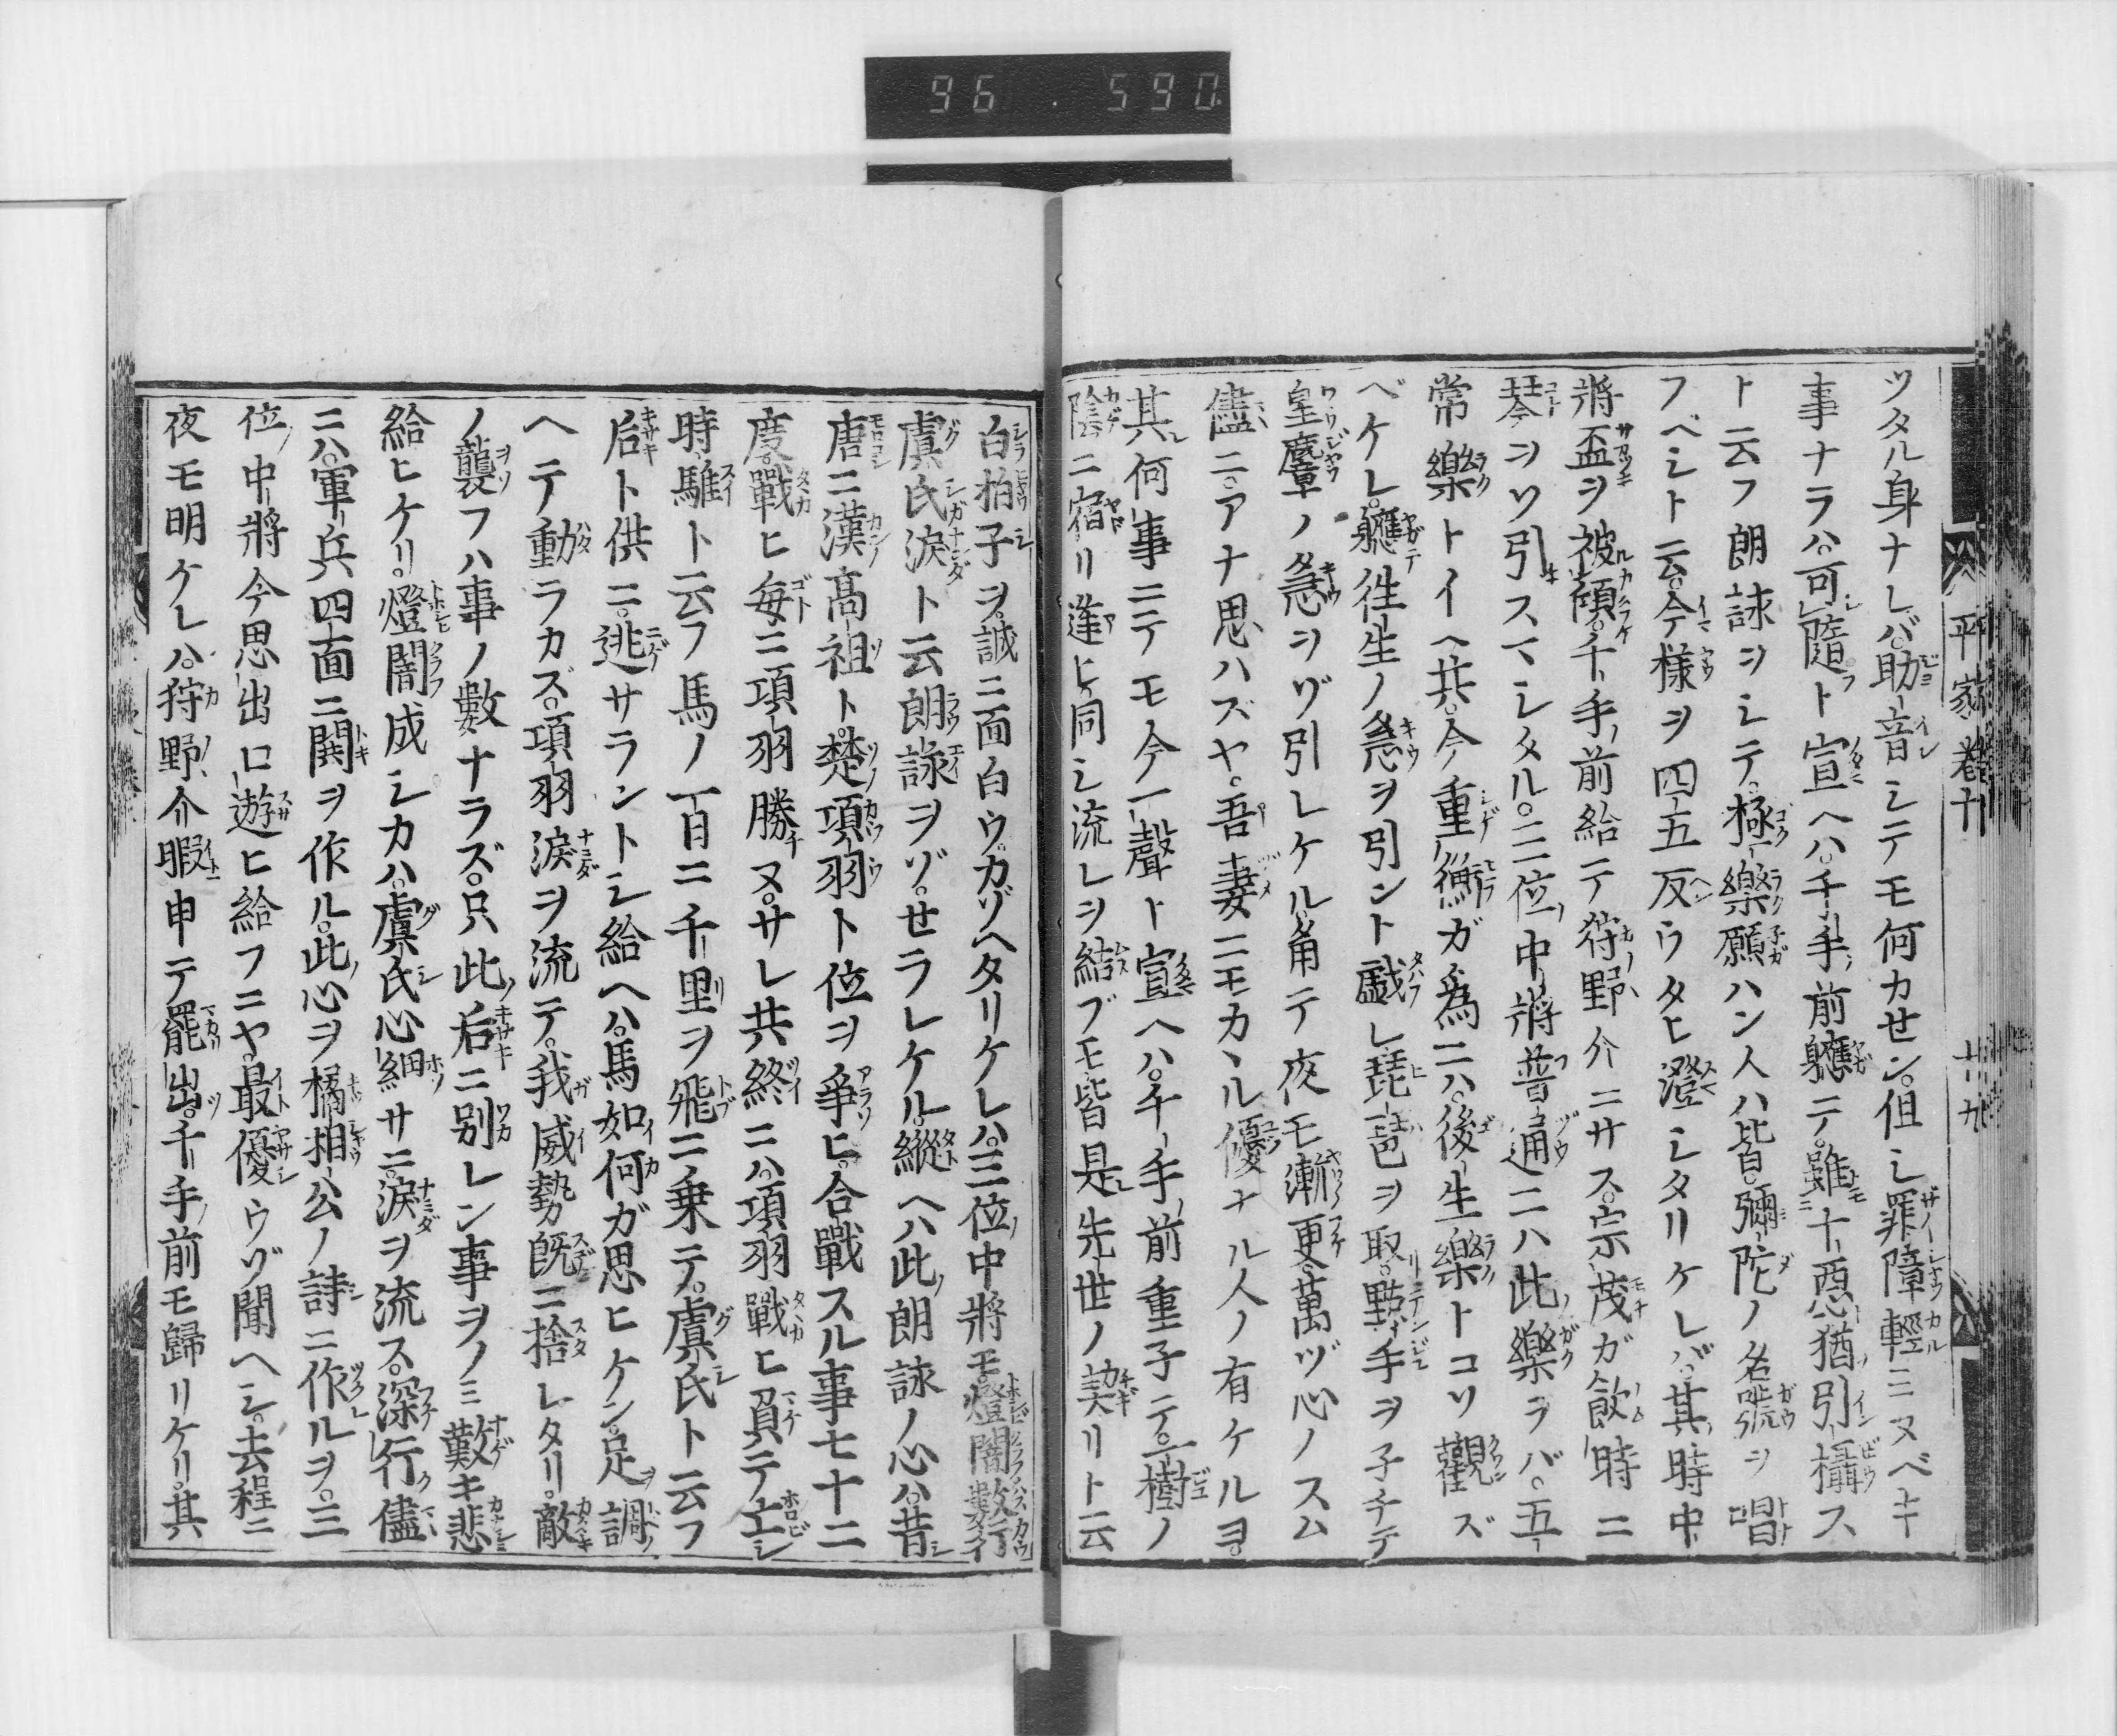 96 590
平家巻十 十九
ツタル身ナレバ助音シテモ何カせン但シ罪障輕ミヌベキ
事ナラハ可隨ト宣ヘハ千手前軈テ雖十悪猶引攝ス
ト云フ朗詠ヲシテ極樂願ハン人ハ皆彌陀ノ名號ヲ唱
フベシト云今様ヲ四五反ウタヒ澄シタリケレバ其時中
將盃ヲ被傾千手前給テ狩野介ニサス宗茂ガ飲時ニ
琴ヲソ引スマシタル三位中將普通ニハ此樂ヲバ五
常樂トイヘ共今重衡ガ爲ニハ後生樂トコソ觀ズ
ベケレ軈往生ノ急ヲ引ント戯レ琵琶ヲ取轉手ヲ子チテ
皇麞ノ急ヲゾ引レケル角テ夜モ漸更萬ヅ心ノスム
儘ニアナ思ハズヤ吾妻ニモカヽル優ナル人ノ有ケルヨ
其何事ニテモ今一聲ト宣ヘハ千手前重子テ一樹ノ
陰ニ宿リ逢ヒ同シ流レヲ結ブモ皆是先世ノ契リト云
白拍子ヲ誠ニ面白ウカゾヘタリケレハ三位中將モ燈闇數行
虞氏涙ト云朗詠ヲゾせラレケル縱ヘハ此朗詠ノ心ハ昔シ
唐ニ漢高祖ト楚項羽ト位ヲ爭ヒ合戰スル事七十二
度戰ヒ毎ニ項羽勝ヌサレ共終ニハ項羽戰ヒ負テ亡シ
時騅ト云フ馬ノ一日ニ千里ヲ飛ニ乗テ虞氏ト云フ
后ト供ニ逃サラントシ給ヘハ馬如何ガ思ヒケン足調
ヘテ動ラカズ項羽涙ヲ流テ我威勢既ニ捨レタリ敵
ノ襲フハ事ノ數ナラズ只此后ニ別レン事ヲノミ歎キ悲
給ヒケリ燈闇成シカハ虞氏心細サニ涙ヲ流ス深行儘
ニハ軍兵四面ニ鬨ヲ作ル此心ヲ橘相公ノ詩ニ作ルヲ三
位中將今思出ロ遊ヒ給フニヤ最優ウゾ聞ヘシ去程ニ
夜モ明ケレハ狩野介暇申テ罷出千手前モ歸リケリ其